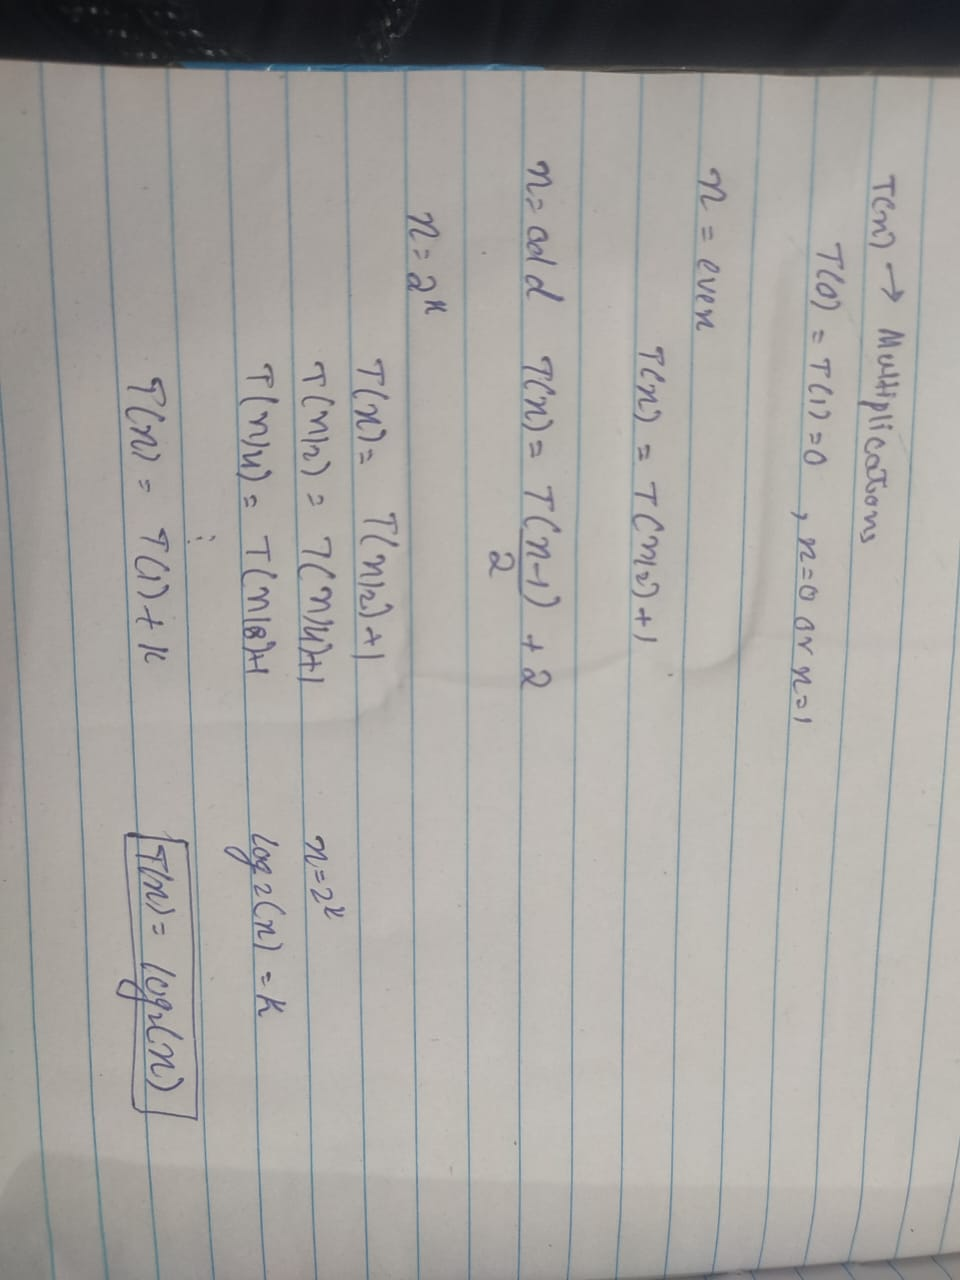 T(n) → Multiplications
T(0) = T(1) = 0 , n=0 or n=1
n = even
T(n) = T(n/2) + 1
n = odd T(n) = T(n-1) + 2
2
n = 2^k
T(n) = T(n/2) + 1
T(n/2) = T(n/4)+1 n=2^k
T(n/4) = T(n/8)+1 log2(n) = k
⋮
T(n) = T(1) + k T(n) = log2(n)